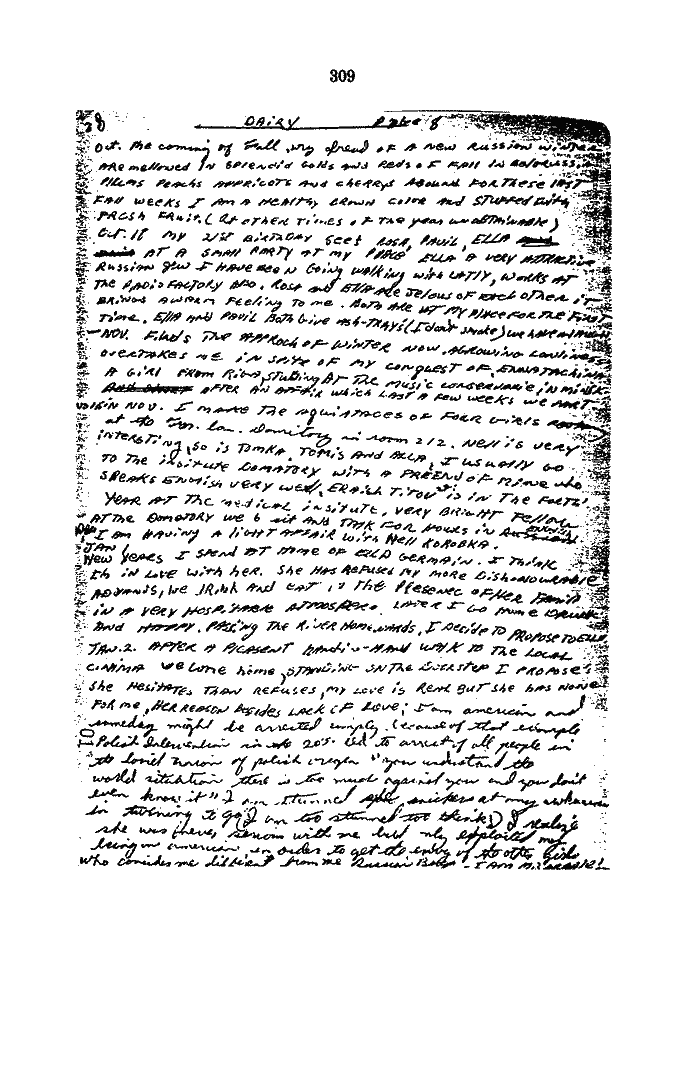 309
DAIRY Page 8
Oct. The coming of Fall, my dread of a new Russian winter
are mellowed in splendid golds and reds of fall in
plums peachs appricots and cherrys abound for these last
fall weeks I am a healthy brown color and stuffed with
fresh fruit. (at other times of the year unobtainable)
Oct. 18 my 21st birthday sees Rosa, Pavil, Ella
at a small party at my place Ella a very attractive
Russian Jew I have been going walking with latly, works at
the radio factory also. Rosa and Ella are jelous of each other it
brings a warm feeling to me. Both are at my place for the first
time. Ella and Pavil both give ash-tray's (I don't smoke) we have a laugh
Nov. Finds the approch of winter now. A growing lonliness
overtakes me in spite of my conquest of Ennatachina
a girl from Riga, studing at the music conservorie in Minsk
After an affair which last a few weeks we part
Nov. I make the aquiataces of four girls rooming
at the For. lan. domitory in room 212. Nell is very
intersting, so is Tomka, Tomis and Alla, I usually go
to the institute domatory with a freend of mine who
speaks english very well, Eraich Titov is in the forth
year at the medical insitute, very bright fellow
At the domatory we 6 sit and talk for hours in
I am having a light affair with Nell Korobka.
Jan 1
New Years I spend at home of Ella Germain. I think
I'm in love with her. She has refused my more dishonourable
advanis, we drink and eat in the presence of her family
in a very hospitable atmosfere. Later I go home drunk
and happy. Passing the river homewards, I decide to propose to Ella
Jan. 2. After a pleasent handin-hand walk to the local
cinima we come home, standing on the doorstep I propose's
She hesitates than refuses, my love is real but she has none
for me, her reason besides lack of love; I am american and
someday might be arrested simply because of that example
Polish Intervention in the 20's. led to arrest of all people in
the Soviet Union of polish oregen "you understand the
world situation there is too much against you and you don't
even know it" I am stunned she snickers at my
in turning to go (I am too stunned too think!) I realize
she was never serious with me but only exploited my
being an american in order to get the envy of the other girls
who consides me different from the Russian Boys. I am misarable!
10